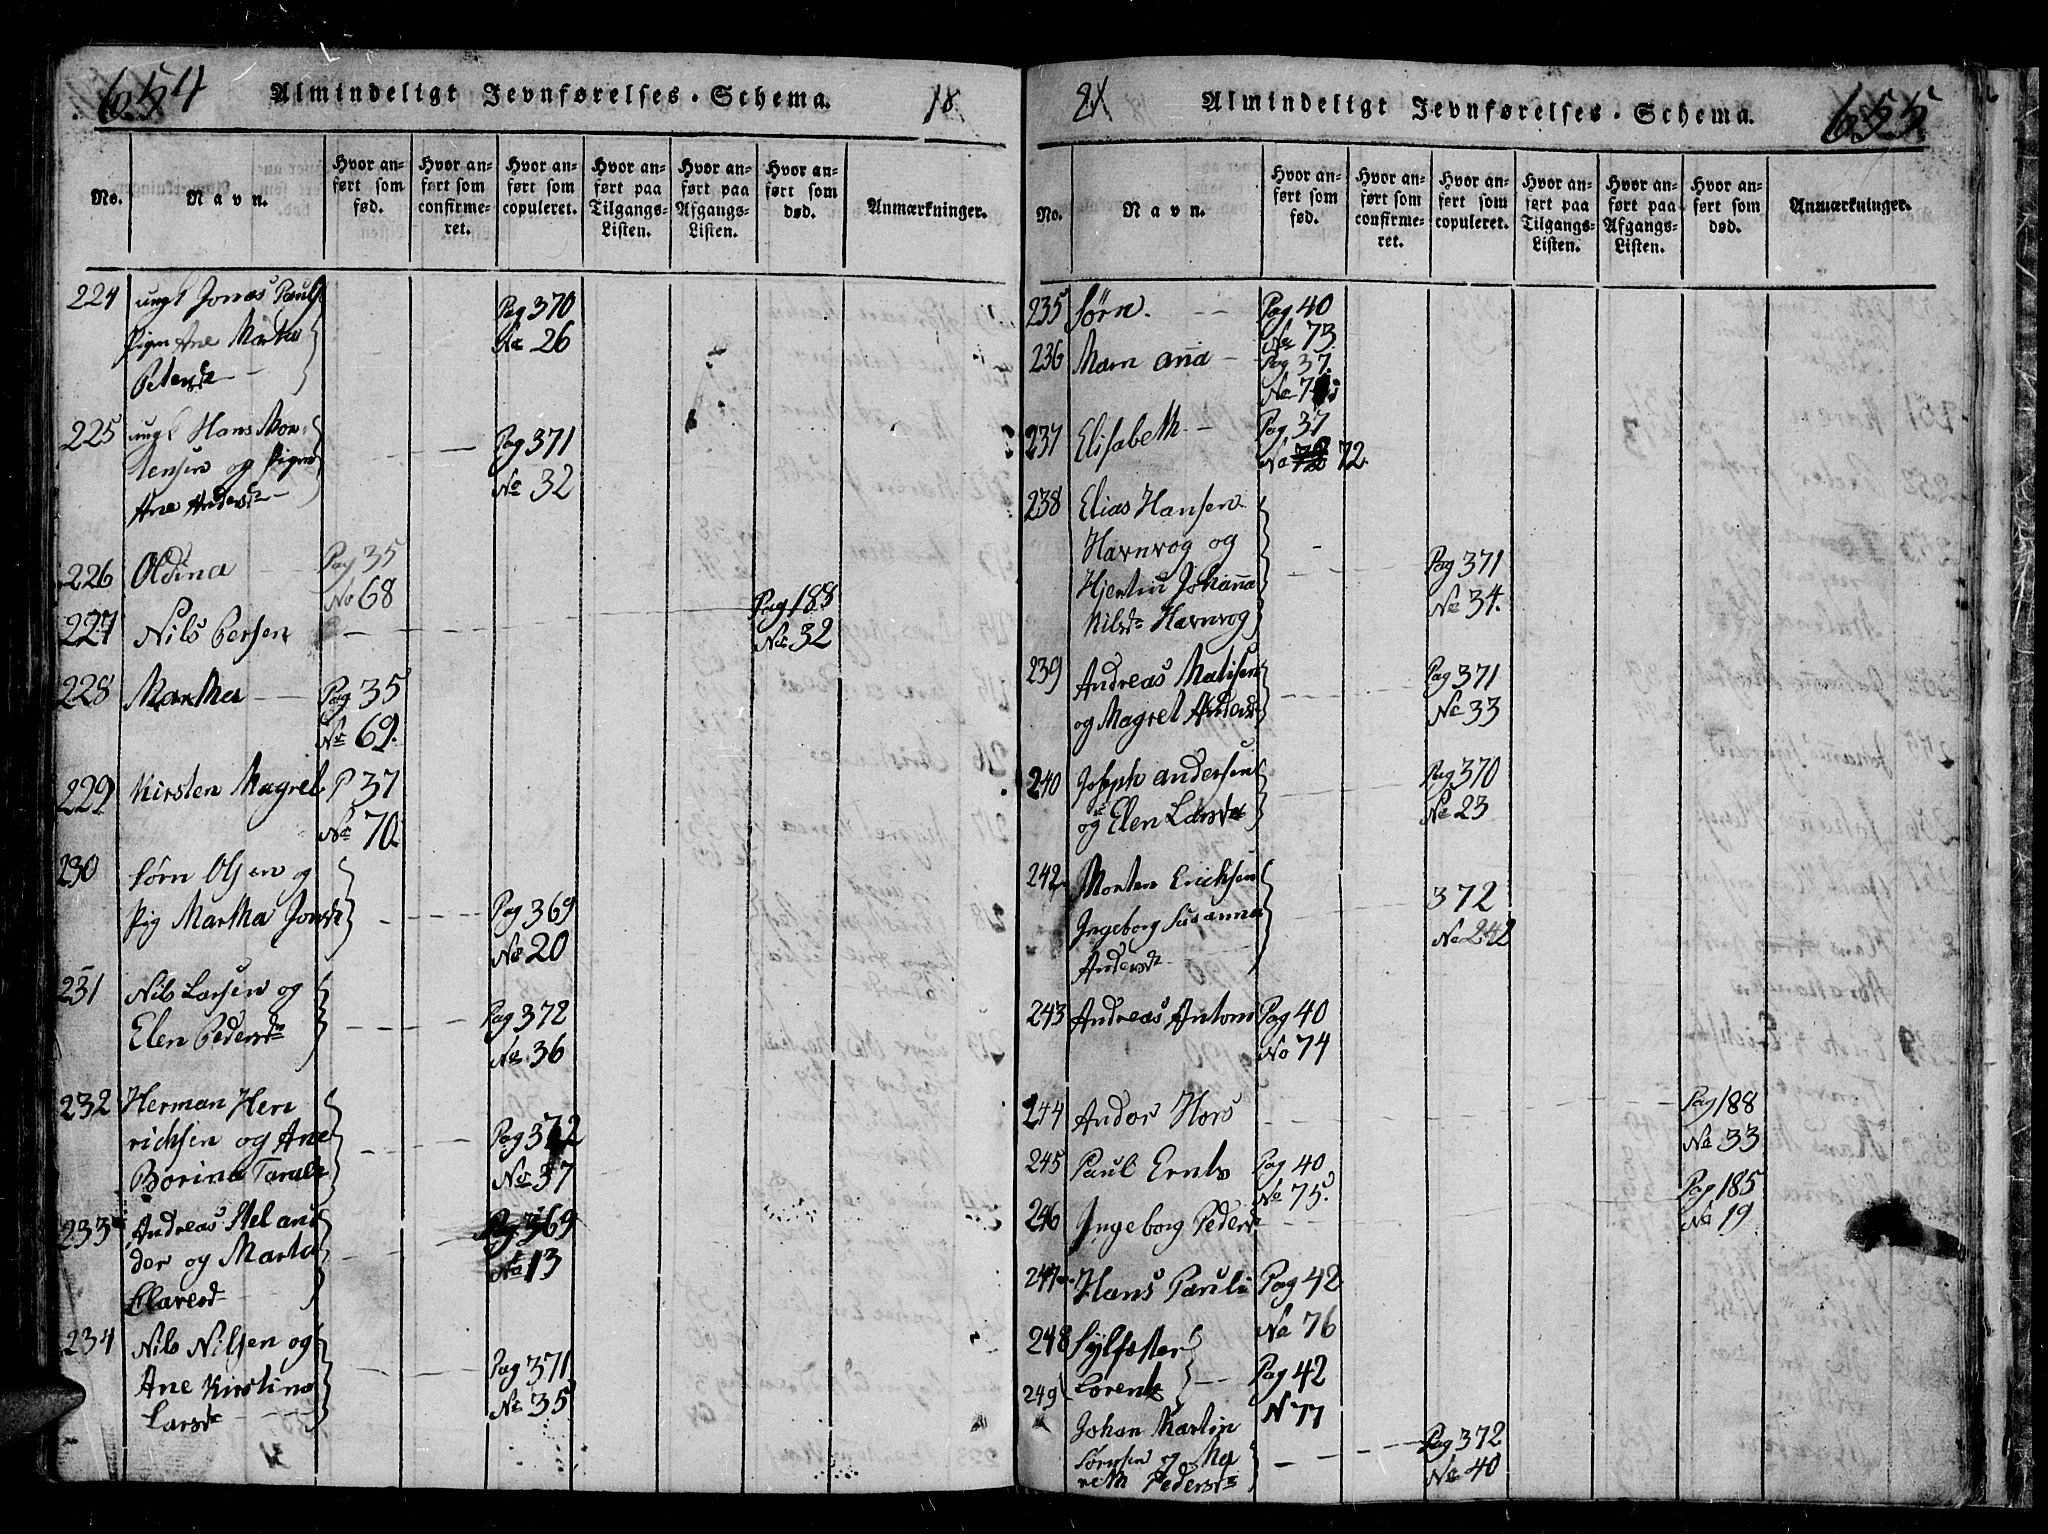 654
Almindeligt Jevnførelses-Schema.
18
No.
Navn.
Hvor anført som fød.
Hvor anført som confirmeret.
Hvor anført som copuleret.
Hvor anført paa Tilgangs-Listen.
Hvor anført paa Afgangs-Listen.
Hvor anført som død.
Anmærkninger.
224 ungk Jonas Pauls
Pigen Ane Marta
Petersdr
Pag 370
No 26
225 ungk Hans Mor
tensen og Pigen
Ane Andersdr
Pag 371
No 32
226 Oldina Pag 35
No 68
227 Nils Persen Pag 188
No 32
228 Martha Pag 35
No 69.
229 Kirsten Magret P 37
No 70
230 Sørn Olsen og
Pig Martha Jonsdr
Pag 369
No 20
231 Nils Larsen og
Elen Pedersdr
Pag 372
No 36
232 Herman Hen
richsen og Ane
Borina
Pag 372
No 37
233 Andreas
der og Marta
Pag 369
No 13
234 Nils Nilsen og
Ane Kirstina
Larsdr
Pag 371
No 35
21
Almindeligt Jevnførelses-Schema.
655
No.
Navn.
Hvor anført som fød.
Hvor anført som confirmeret.
Hvor anført som copuleret.
Hvor anført paa Tilgangs-Listen.
Hvor anført paa Afgangs-Listen.
Hvor anført som død.
Anmærkninger.
235 Sørn. Pag 40
No 73
236 Marn ana Pag 37.
237 Elisabeth Pag 37
No 72.
238 Elias Hansen
Havnvog og
Hjertin Johanna
Nilsdr Havnvog
Pag 371
No 34.
239 Andreas Matisen
og Magret Andersdr
Pag 371
No 33
240 Joseph andersen
og Elen Larsdr
Pag 370
No 23
242 Morten Erichsen
Ingeborg Susanna
Andersdr
372
No 242
243 Andreas Antoni Pag 40
No 74
244 Andor Hors Pag 188
No 33
245 Paul Ernts Pag 40
No 75.
246 Ingeborg Pedersdr Pag 185
No 19
247 Hans Pauli Pag 42
No 76
248 Sylfæster
Lorentz
Pag 42
N 77
249 Johan Martin
Sørnsen og Ma
reth Pedersdr
Pag 372
No 40